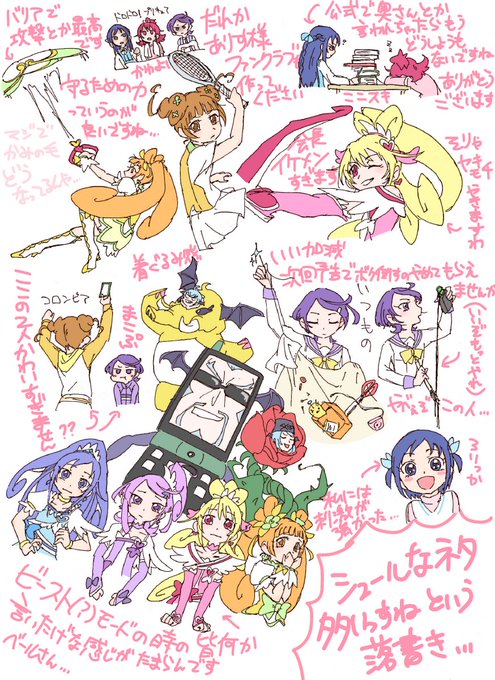 バリアで
攻撃とか最高
です
ドロドロプリキュア
かわよ!
だれか
ありす様
ファンクラブを
作って
ください
公式で奥さんとか
言われちゃったらもう
どうしようも
ないですね
ありがとう
ございます
ここスキ
守るための力
っていうのが
良いですね…
マジで
かみのも
どう
なってるんじゃ
会長
イケメン
すぎます
そりゃ
ヤキモチ
やきますわ
着ぐるみ感
いい加減
次回予告でボケ倒すのやめてもらえ
ませんか
(いいぞもっとやれ)
いつもの
やべえぞ
この人…
ここの2人かわいすぎません??
コロンビア
まこぴー
ろりっか
私には
刺激が
強かった…
ビースト(?)モードの時の皆何か
言いたげな感じがたまらんです
ベールさん…
シュールなネタ
多いっすねという
落書き…